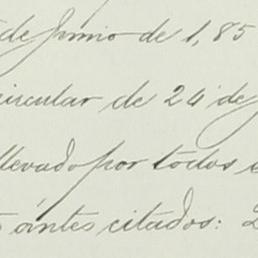 de Junio de 1,85
circular de 24 de
llevado por todos
antes citados: